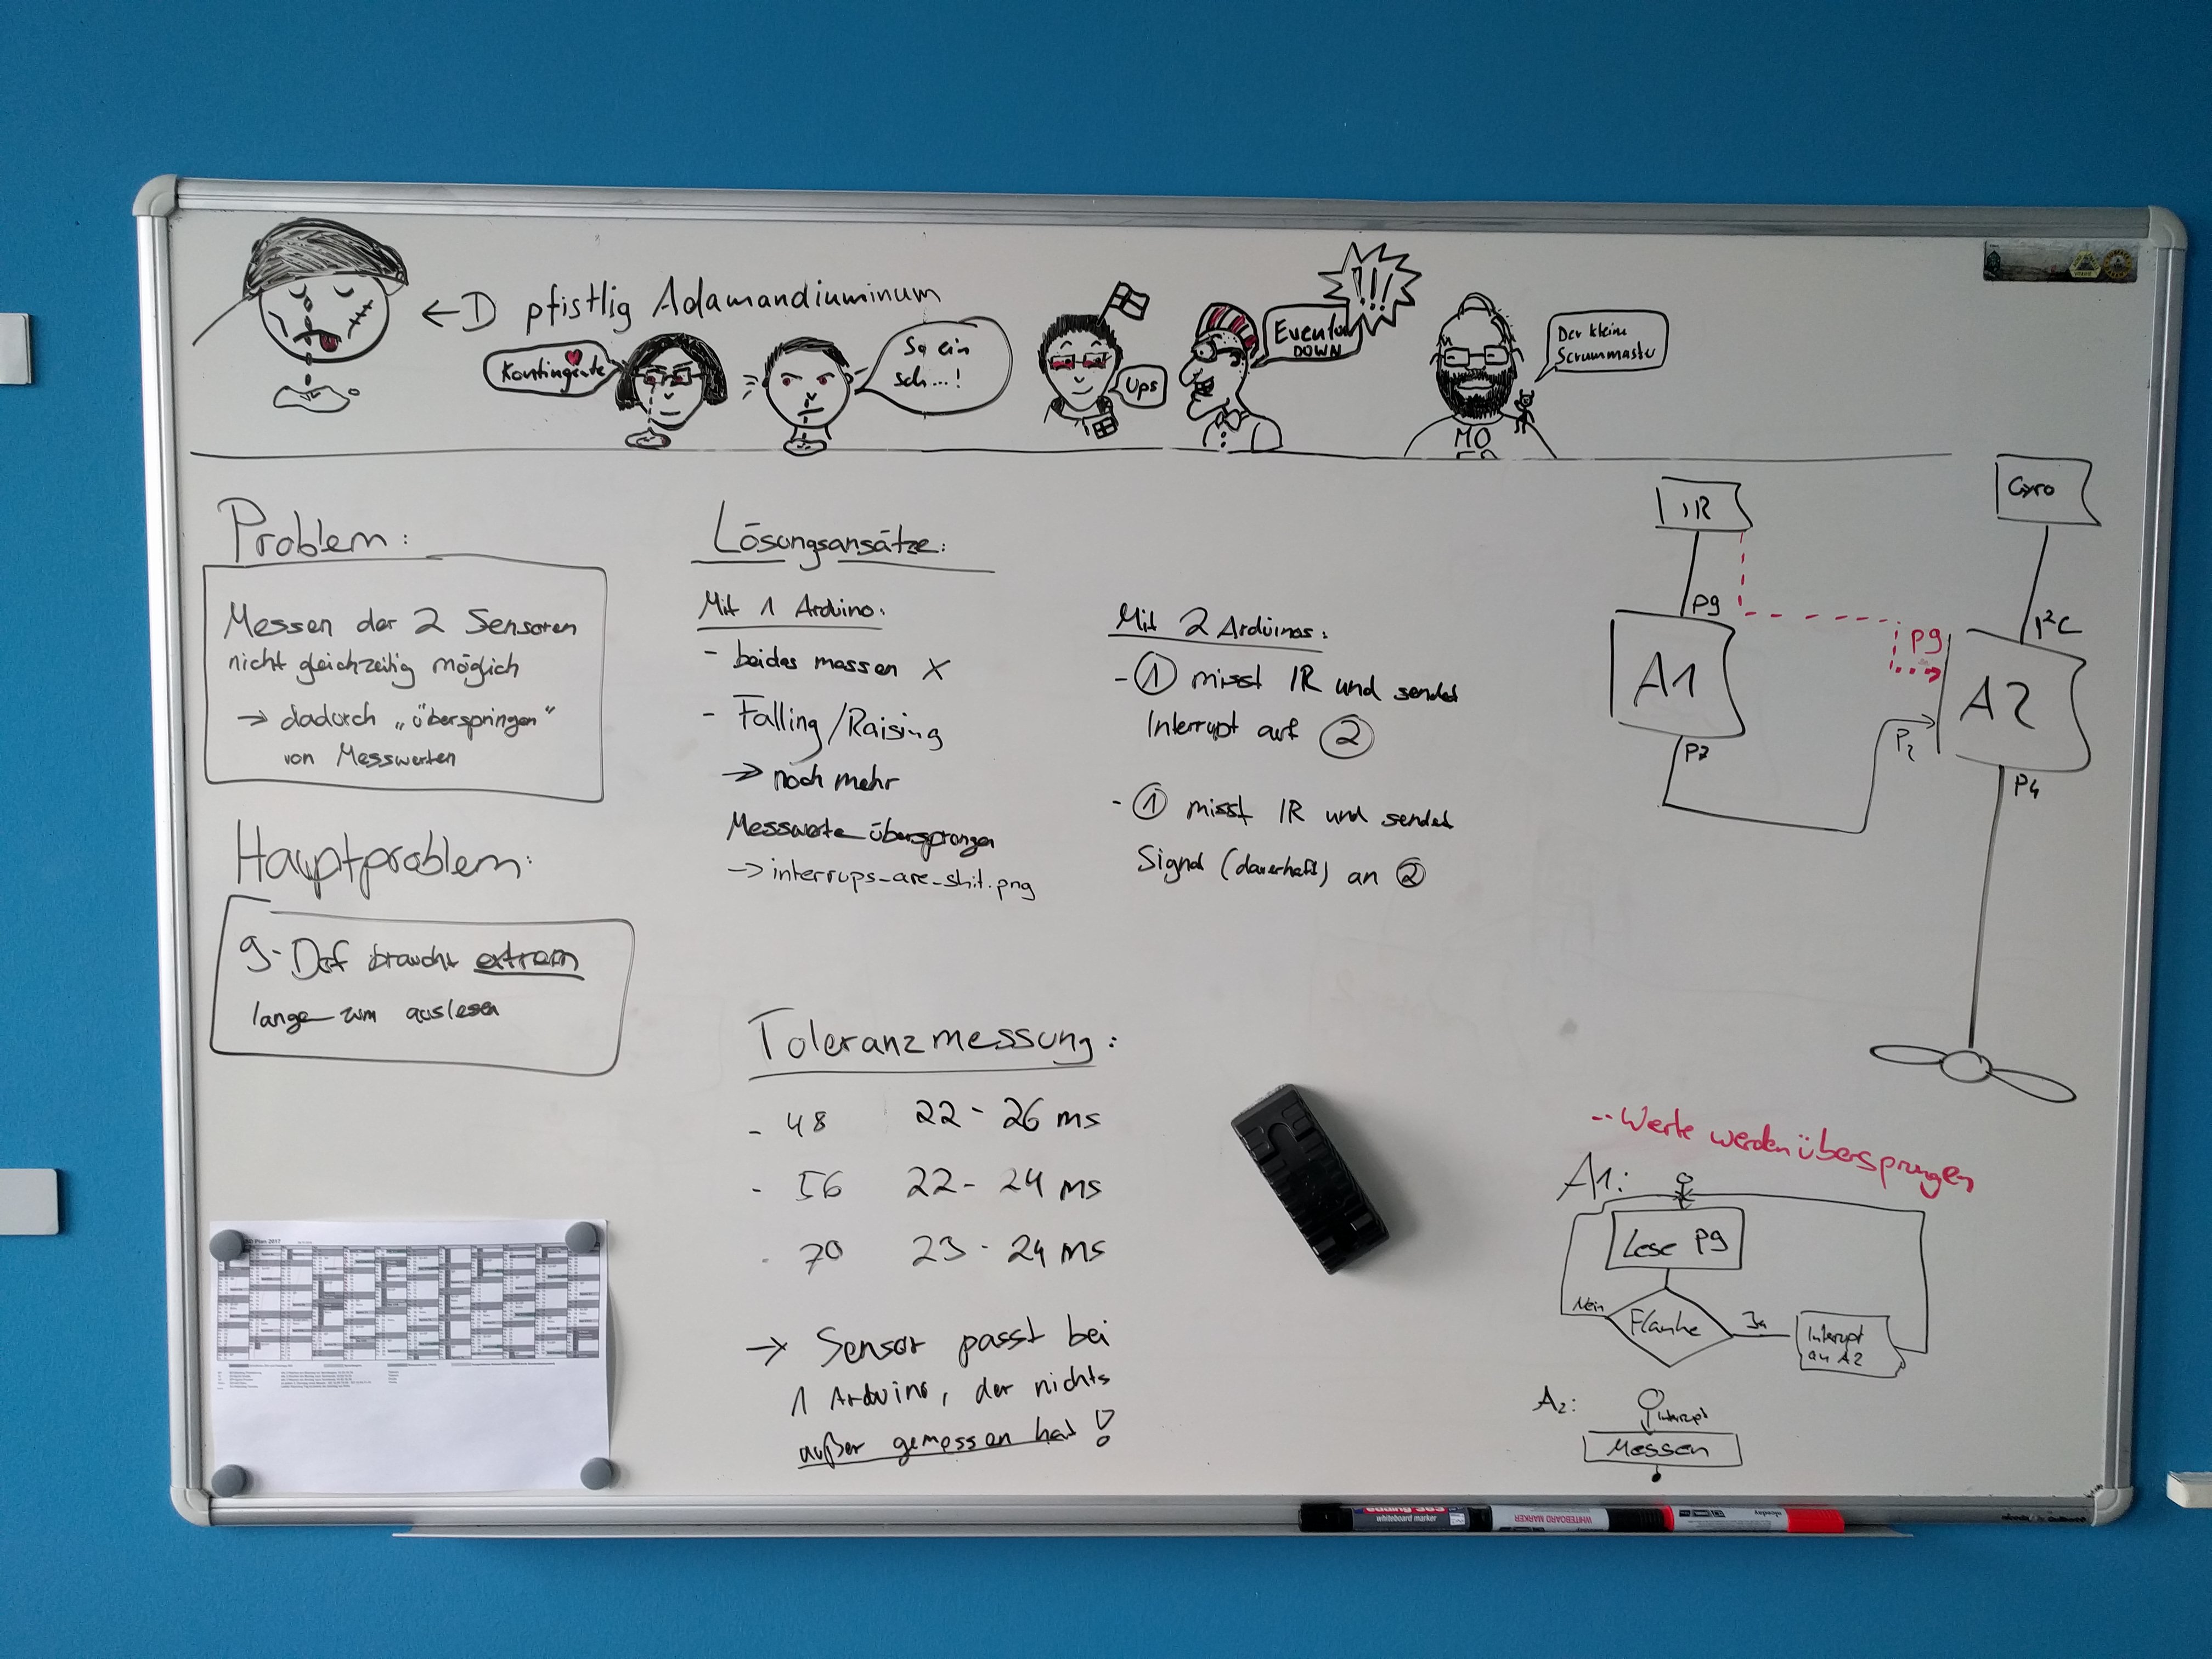 ← D pfistlig Adamandiuminum
Kontingente
So ein
sch...!
Ups
!!!
DOWN
Der kleine
Scrummaster
MO
Problem:
Messen der 2 Sensoren
nicht gleichzeitig möglich
→ dadurch „überspringen“
von Messwerten
Hauptproblem:
9-Dof braucht extrem
lange zum auslesen
Lösungsansätze:
Mit 1 Arduino:
- beides messen X
- Falling/Raising
→ noch mehr
Messwerte übersprungen
→ interrups_are_shit.png
Mit 2 Arduinos:
- ① misst IR und sendet
Interrupt auf ②
- ① misst IR und sendet
Signal (dauerhaft) an ②
Toleranzmessung:
- 48 22 - 26 ms
- 56 22 - 24 ms
- 70 23 - 24 ms
→ Sensor passt bei
1 Arduino, der nichts
außer gemessen hat!
IR
Gyro
P9
I²C
P9
A1
A2
P2
P4
-- Werte werden übersprungen
A1:
Lese P9
Nein
Flanke
Ja
Interupt
an A2
A2:
Interupt
Messen
Plan 2017
whiteboard marker
WHITEBOARD MARKER